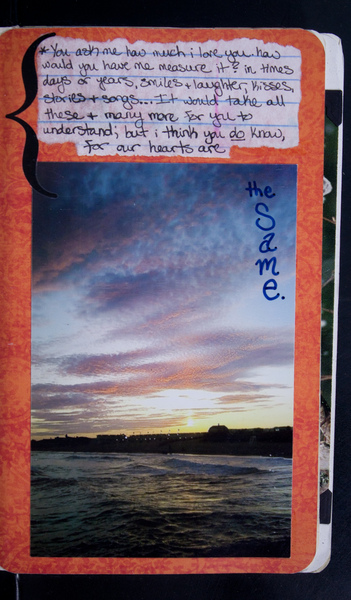 *You ask me how much i love you. how
would you have me measure it? in times
days or years, smiles + laughter, kisses,
stories + songs... It would take all
these + many more for you to
understand; but i think you do know,
for our hearts are
the
Same.